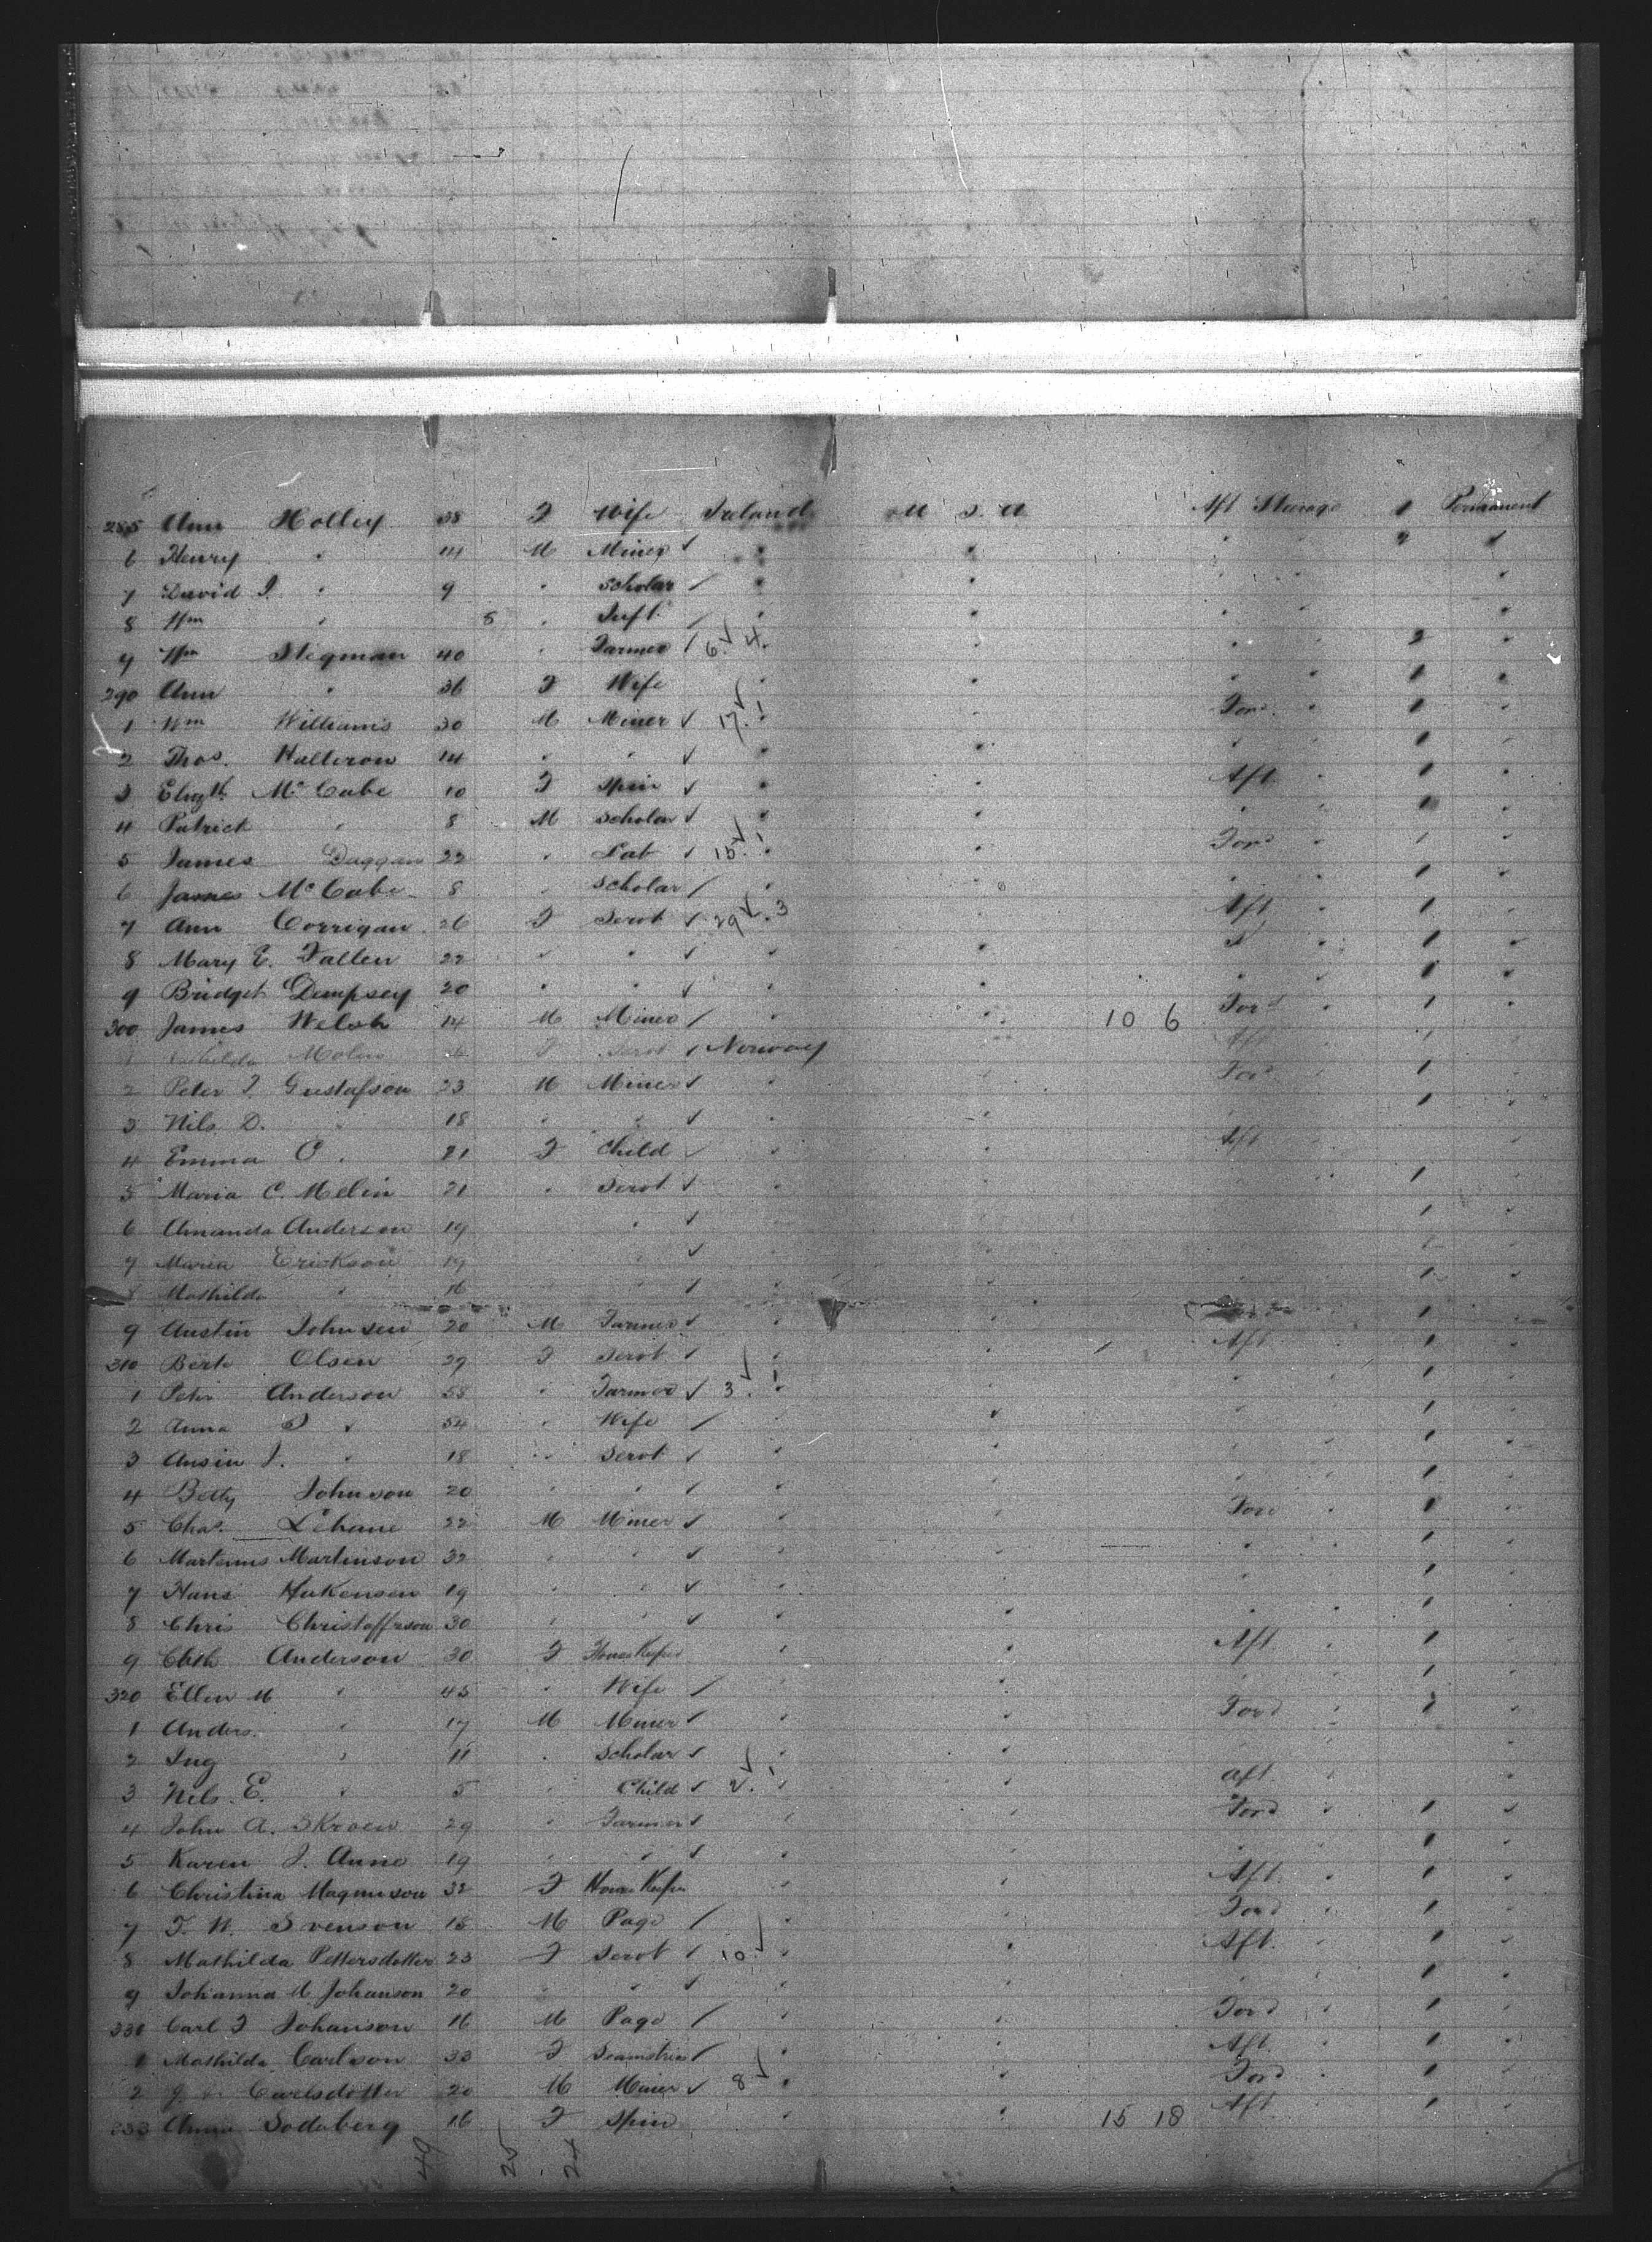 285 Ann Holley 38 F Wife Ireland U S A Aft Steerage 1 Permanent
6 Henry " 14 M Miner ✓ " " " " 2 "
7 David J. " 9 " Scholar / " " " " "
8 Wm " 8 " Inft. / " " " " "
9 Wm Stegman 40 " Farmer / 6 ✓ 4. " " 2 "
290 Ann " 36 F Wife " " " " 1 "
1 Wm Williams 30 M Miner ✓ 17 ✓ 1 " Ford " 1 "
2 Thos. Halleron 14 " " ✓ " " " " 1 "
3 Elizth Mc Cabe 10 F Spin ✓ " " Aft " 1 "
4 Patrick " 8 M Scholar ✓ " " " " 1 "
5 James Duggan 22 " Lab ✓ 15 ✓ 1 " " Ford " 1 "
6 James Mc Cabe 8 " Scholar / " " " " 1 "
7 Ann Corrigan 26 F Servt ✓ 29 ✓ 3 " Aft " 1 "
8 Mary E. Fallen 22 " " ✓ " " " " 1 "
9 Bridget Dempsey 20 " " ✓ " " " " 1 "
300 James Welsh 14 M Miner / " " 10 6 Ford " 1 "
1 Malin F Servt ✓ Norway Aft
2 Peter J. Gustafson 23 M Miner ✓ " Ford 1 "
3 Nils D. " 18 " " ✓ " " 1 "
4 Emma C. 21 F Child ✓ " " Aft "
5 Maria C. Melin 21 " Servt ✓ " 1 "
6 Amanda Anderson 19 " ✓ 1 "
7 Maria Erickson 19 ✓ 1 "
8 Mathilda " 16 ✓ " " 1 "
9 Austin Johnsen 20 M Farmer ✓ " " 1 "
310 Berte Olsen 29 F Servt ✓ " " Aft 1 "
1 Peter Anderson 58 " Farmer ✓ 3 ✓ 1 " " 1 "
2 Anna S " 54 " Wife / " " 1 "
3 Ansin J. " 18 " Servt ✓ " " " 1 "
4 Betty Johnson 20 " " ✓ " " " 1 "
5 Chas. Lehane 22 M Miner ✓ " " Ford " 1 "
6 Martinus Martinson 32 " " ✓ " " " 1 "
7 Hans Hakensen 19 " " ✓ " " 1 "
8 Chris Christoffrson 30 " " ✓ " " " " 1 "
9 Anderson 30 F House Keeper " " Aft " 1 "
320 Ellen M " 45 " Wife / " " " " 1 "
1 Anders. " 17 M Miner ✓ " " Ford " 1 "
2 Ing " 11 " Scholar ✓ " " "
3 Nils E. " 5 " Child ✓ 2 ✓ 1 " " Aft " "
4 John A. Skroen 29 " Farmer ✓ " " Ford " 1 "
5 Karen J. Anne 19 " " ✓ " " " " 1 "
6 Christina Magnuson 32 F House Keeper " " Aft. " 1 "
7 F. W. Svenson 18 M Page / " " Ford " 1 "
8 Mathilda Pettersdotter 23 F Servt ✓ 10 ✓ " " Aft. " 1 "
9 Johanna M Johanson 20 " " ✓ " " " " 1 "
330 Carl F Johanson 16 M Page / " " Ford " 1 "
1 Mathilda Carlson 33 F Seamstress / " " Aft. " 1 "
2 Carlsdotter 20 M Miner ✓ 8 ✓ " " Ford " 1 "
333 Anna Sodeberg 16 F Spin " " 15 18 Aft " 1 "
49 25 24